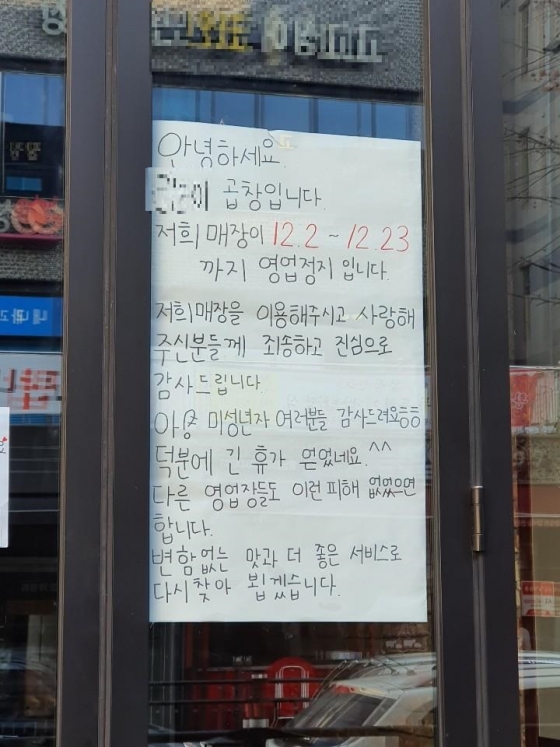 안녕하세요.
곱창입니다.
저희 매장이 12.2 ~ 12.23
까지 영업정지 입니다.
저희매장을 이용해주시고 사랑해
주신분들께 죄송하고 진심으로
감사드립니다.
미성년자 여러분들 감사드려요ㅎㅎ
덕분에 긴 휴가 얻었네요.^^
다른 영업장들도 이런 피해 없었으면
합니다.
변함없는 맛과 더 좋은 서비스로
다시찾아 뵙겠습니다.